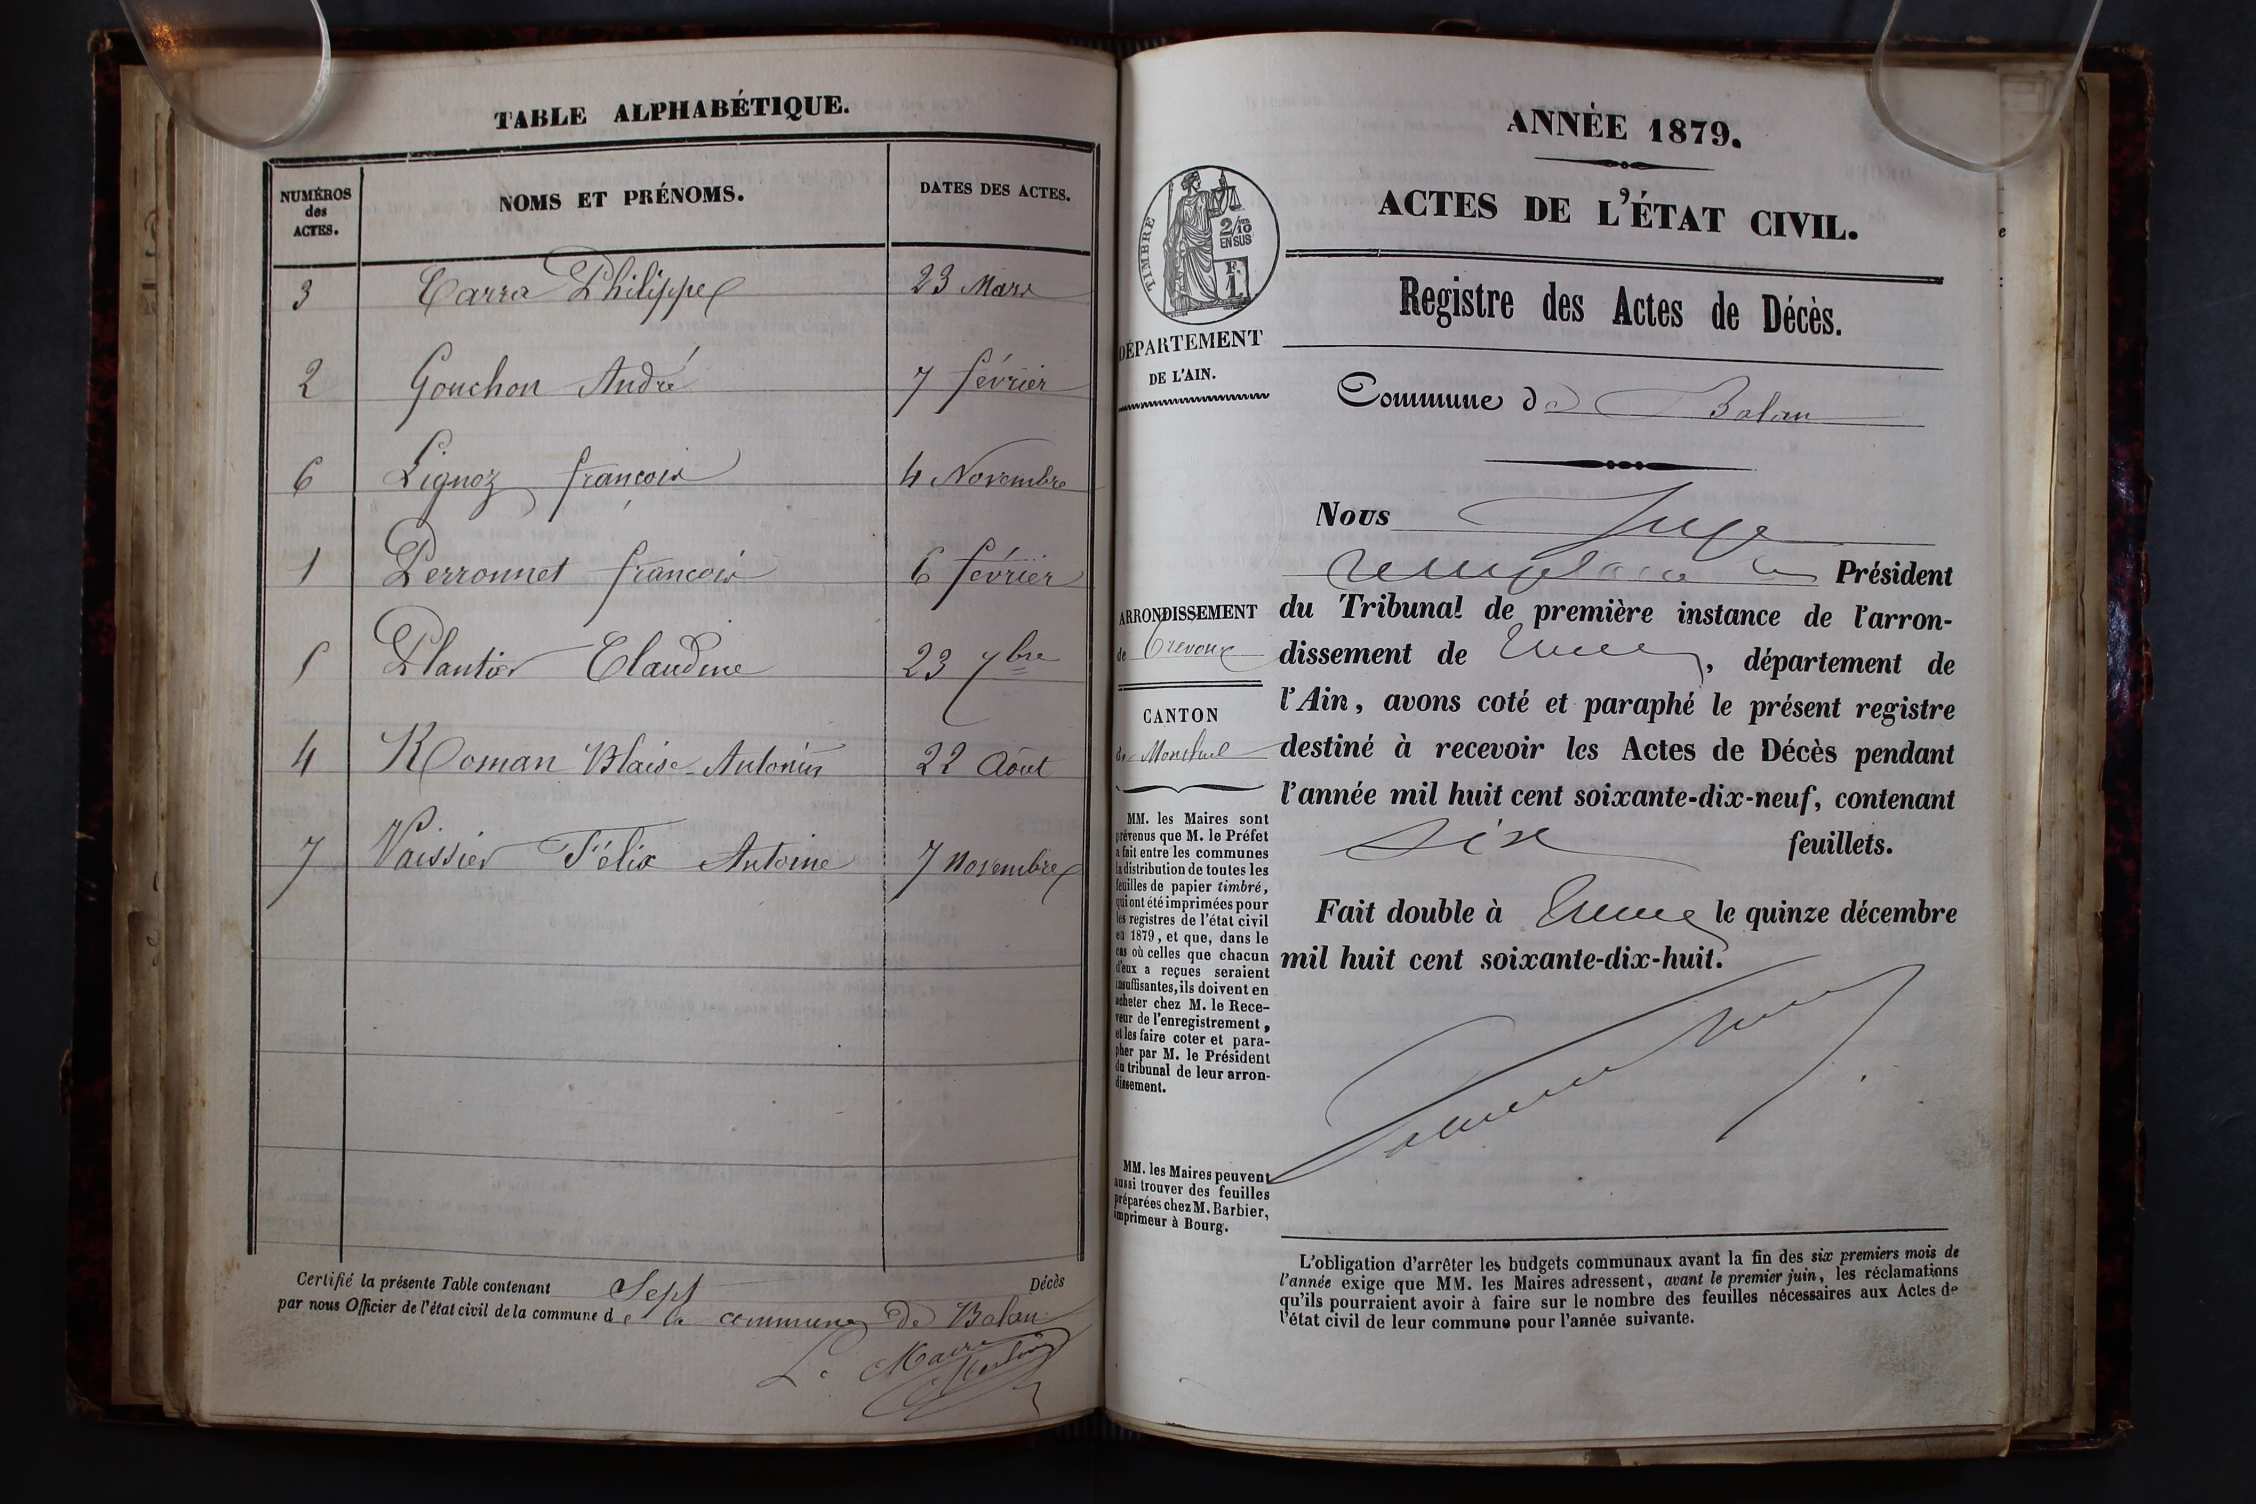 TABLE ALPHABÉTIQUE.
NUMÉROS
des
ACTES.
NOMS ET PRÉNOMS.
DATES DES ACTES.
3 Carra Philippe 23 Mars
2 Gouchon André 7 février
6 Lignoz françois 4 Novembre
1 Perronnet françois 6 février
5 Plantier Claudine 23 7bre
4 Roman Blaise-Antonin 22 Aout
7 Vaissier Félix Antoine 7 novembre
Certifié la présente Table contenant Sept Décès
par nous Officier de l'état civil de la commune de la commune de Balan
Le Maire
ANNÉE 1879.
ACTES DE L'ÉTAT CIVIL.
TIMBRE
2/10
EN SUS
F.
1.
Registre des Actes de Décès.
DÉPARTEMENT
DE L'AIN.
Commune de Balan
Nous Juge
remplaçant le Président
du Tribunal de première instance de l'arron-
dissement de Trévoux, département de
l'Ain, avons coté et paraphé le présent registre
destiné à recevoir les Actes de Décès pendant
l'année mil huit cent soixante-dix-neuf, contenant
six feuillets.
Fait double à Trévoux le quinze décembre
mil huit cent soixante-dix-huit.
ARRONDISSEMENT
de Trévoux
CANTON
de Montluel
MM. les Maires sont
prévenus que M. le Préfet
a fait entre les communes
la distribution de toutes les
feuilles de papier timbré,
qui ont été imprimées pour
les registres de l'état civil
en 1879, et que, dans le
cas où celles que chacun
d'eux a reçues seraient
insuffisantes, ils doivent en
acheter chez M. le Rece-
veur de l'enregistrement,
et les faire coter et para-
pher par M. le Président
du tribunal de leur arron-
dissement.
MM. les Maires peuvent
aussi trouver des feuilles
préparées chez M. Barbier,
imprimeur à Bourg.
L'obligation d'arrêter les budgets communaux avant la fin des six premiers mois de
l'année exige que MM. les Maires adressent, avant le premier juin, les réclamations
qu'ils pourraient avoir à faire sur le nombre des feuilles nécessaires aux Actes de
l'état civil de leur commune pour l'année suivante.